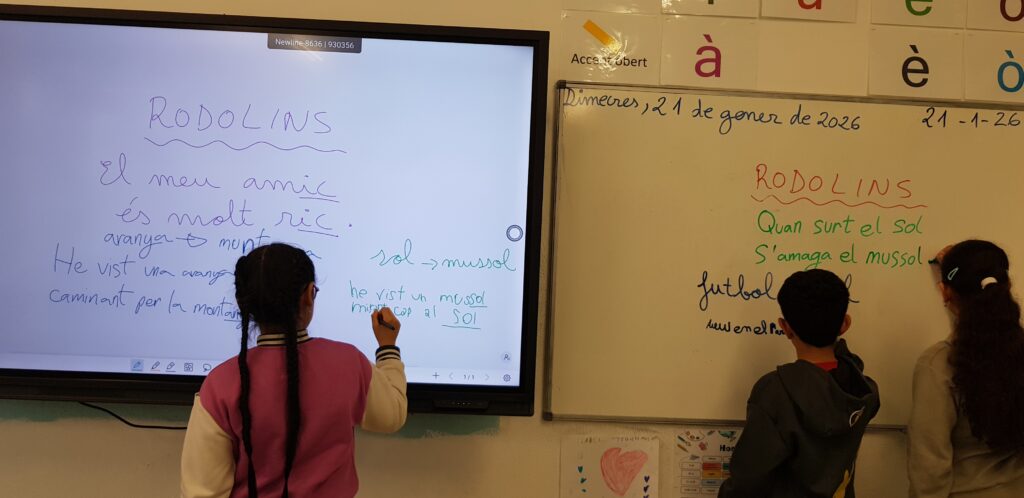 Newline 8636 | 930356
RODOLINS
El meu amic
és molt ric.
aranya
He vist una aranya
caminant per la
sol → mussol
he vist un mussol
cap al SOL
1/1
Accent obert
à
è
ò
Dimecres, 21 de gener de 2026
21-1-26
RODOLINS
Quan surt el sol
S'amaga el mussol
futbol
en el